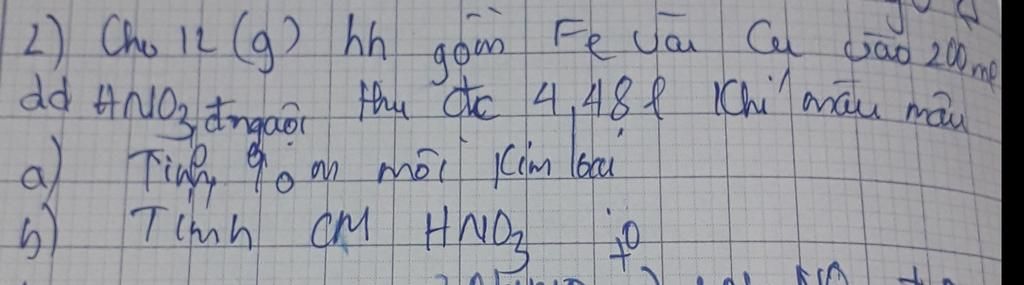 2) Cho 12 (g) hh gồm Fe và Cu vào 200ml
dd HNO3 đ nguội thu đc 4,48l khí màu nâu
a) Tính % m mỗi kim loại
b) Tính CM HNO3